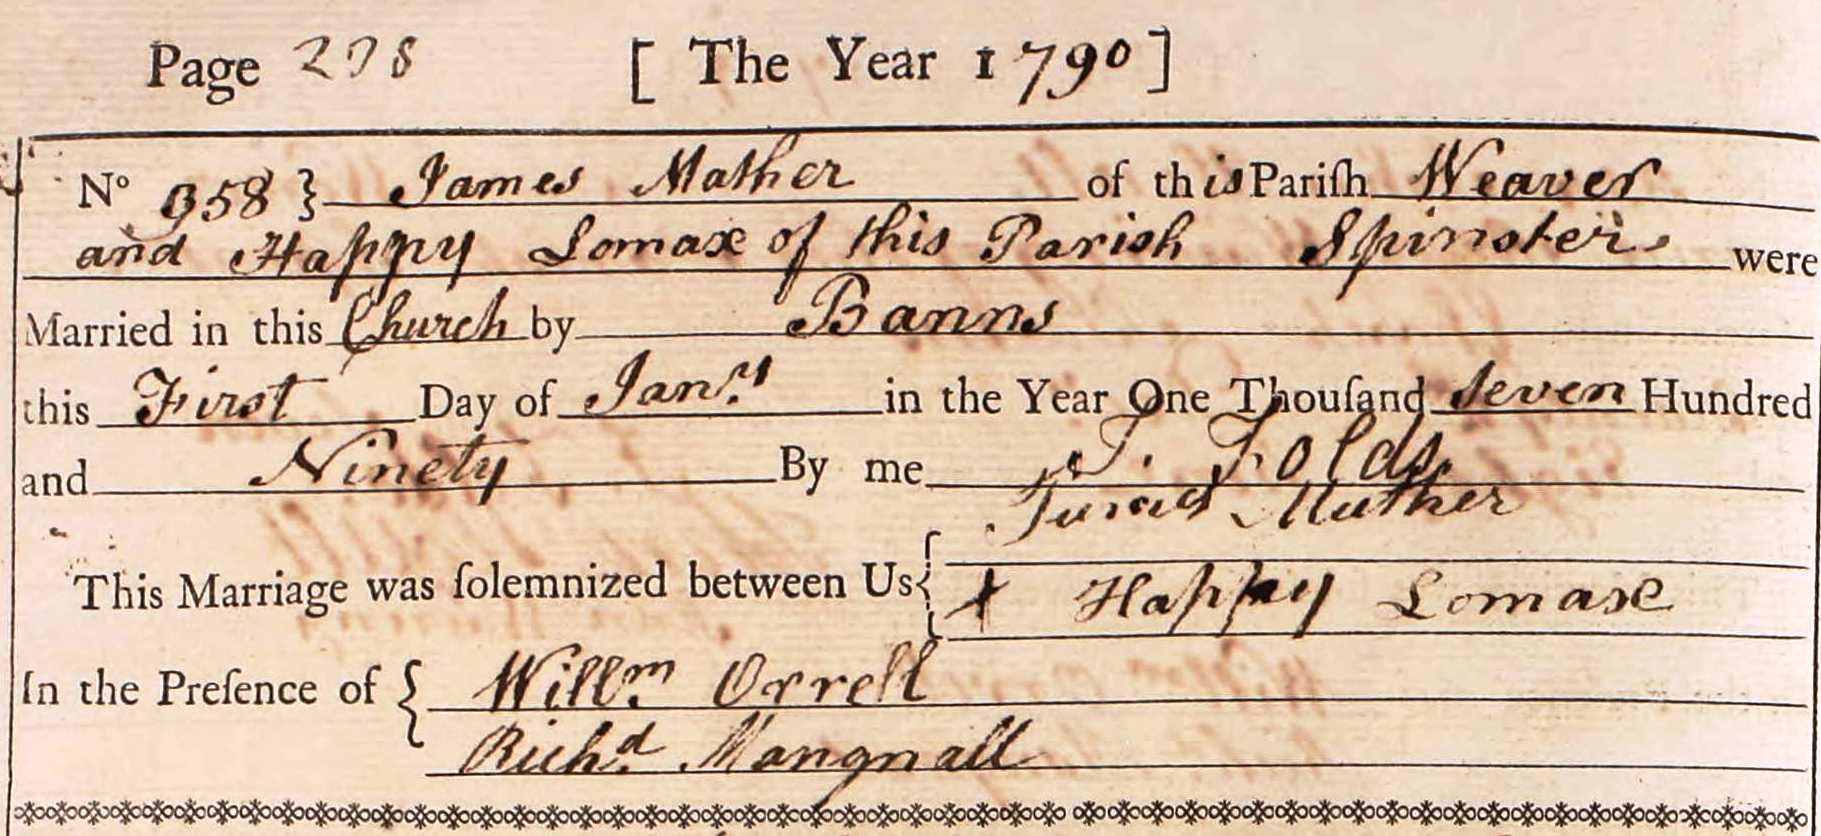 Page 298 [ The Year 1790 ]
No 958 } James Mather of this Pariſh Weaver
and Happy Lomax of this Parish Spinster were
Married in this Church by Banns
this First Day of Janry. in the Year One Thouſand Seven Hundred
and Ninety By me J. Folds
James Mather
This Marriage was ſolemnized between Us {
+ Happy Lomaxe
In the Preſence of { Willm. Orrell
Richd. Mangnall